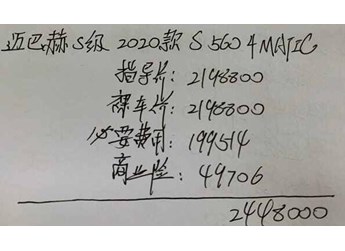 迈巴赫S级 2020款 S 560 4MATIC
指导价: 2198800
裸车价: 2198800
必要费用: 199514
商业险: 49706
2448000